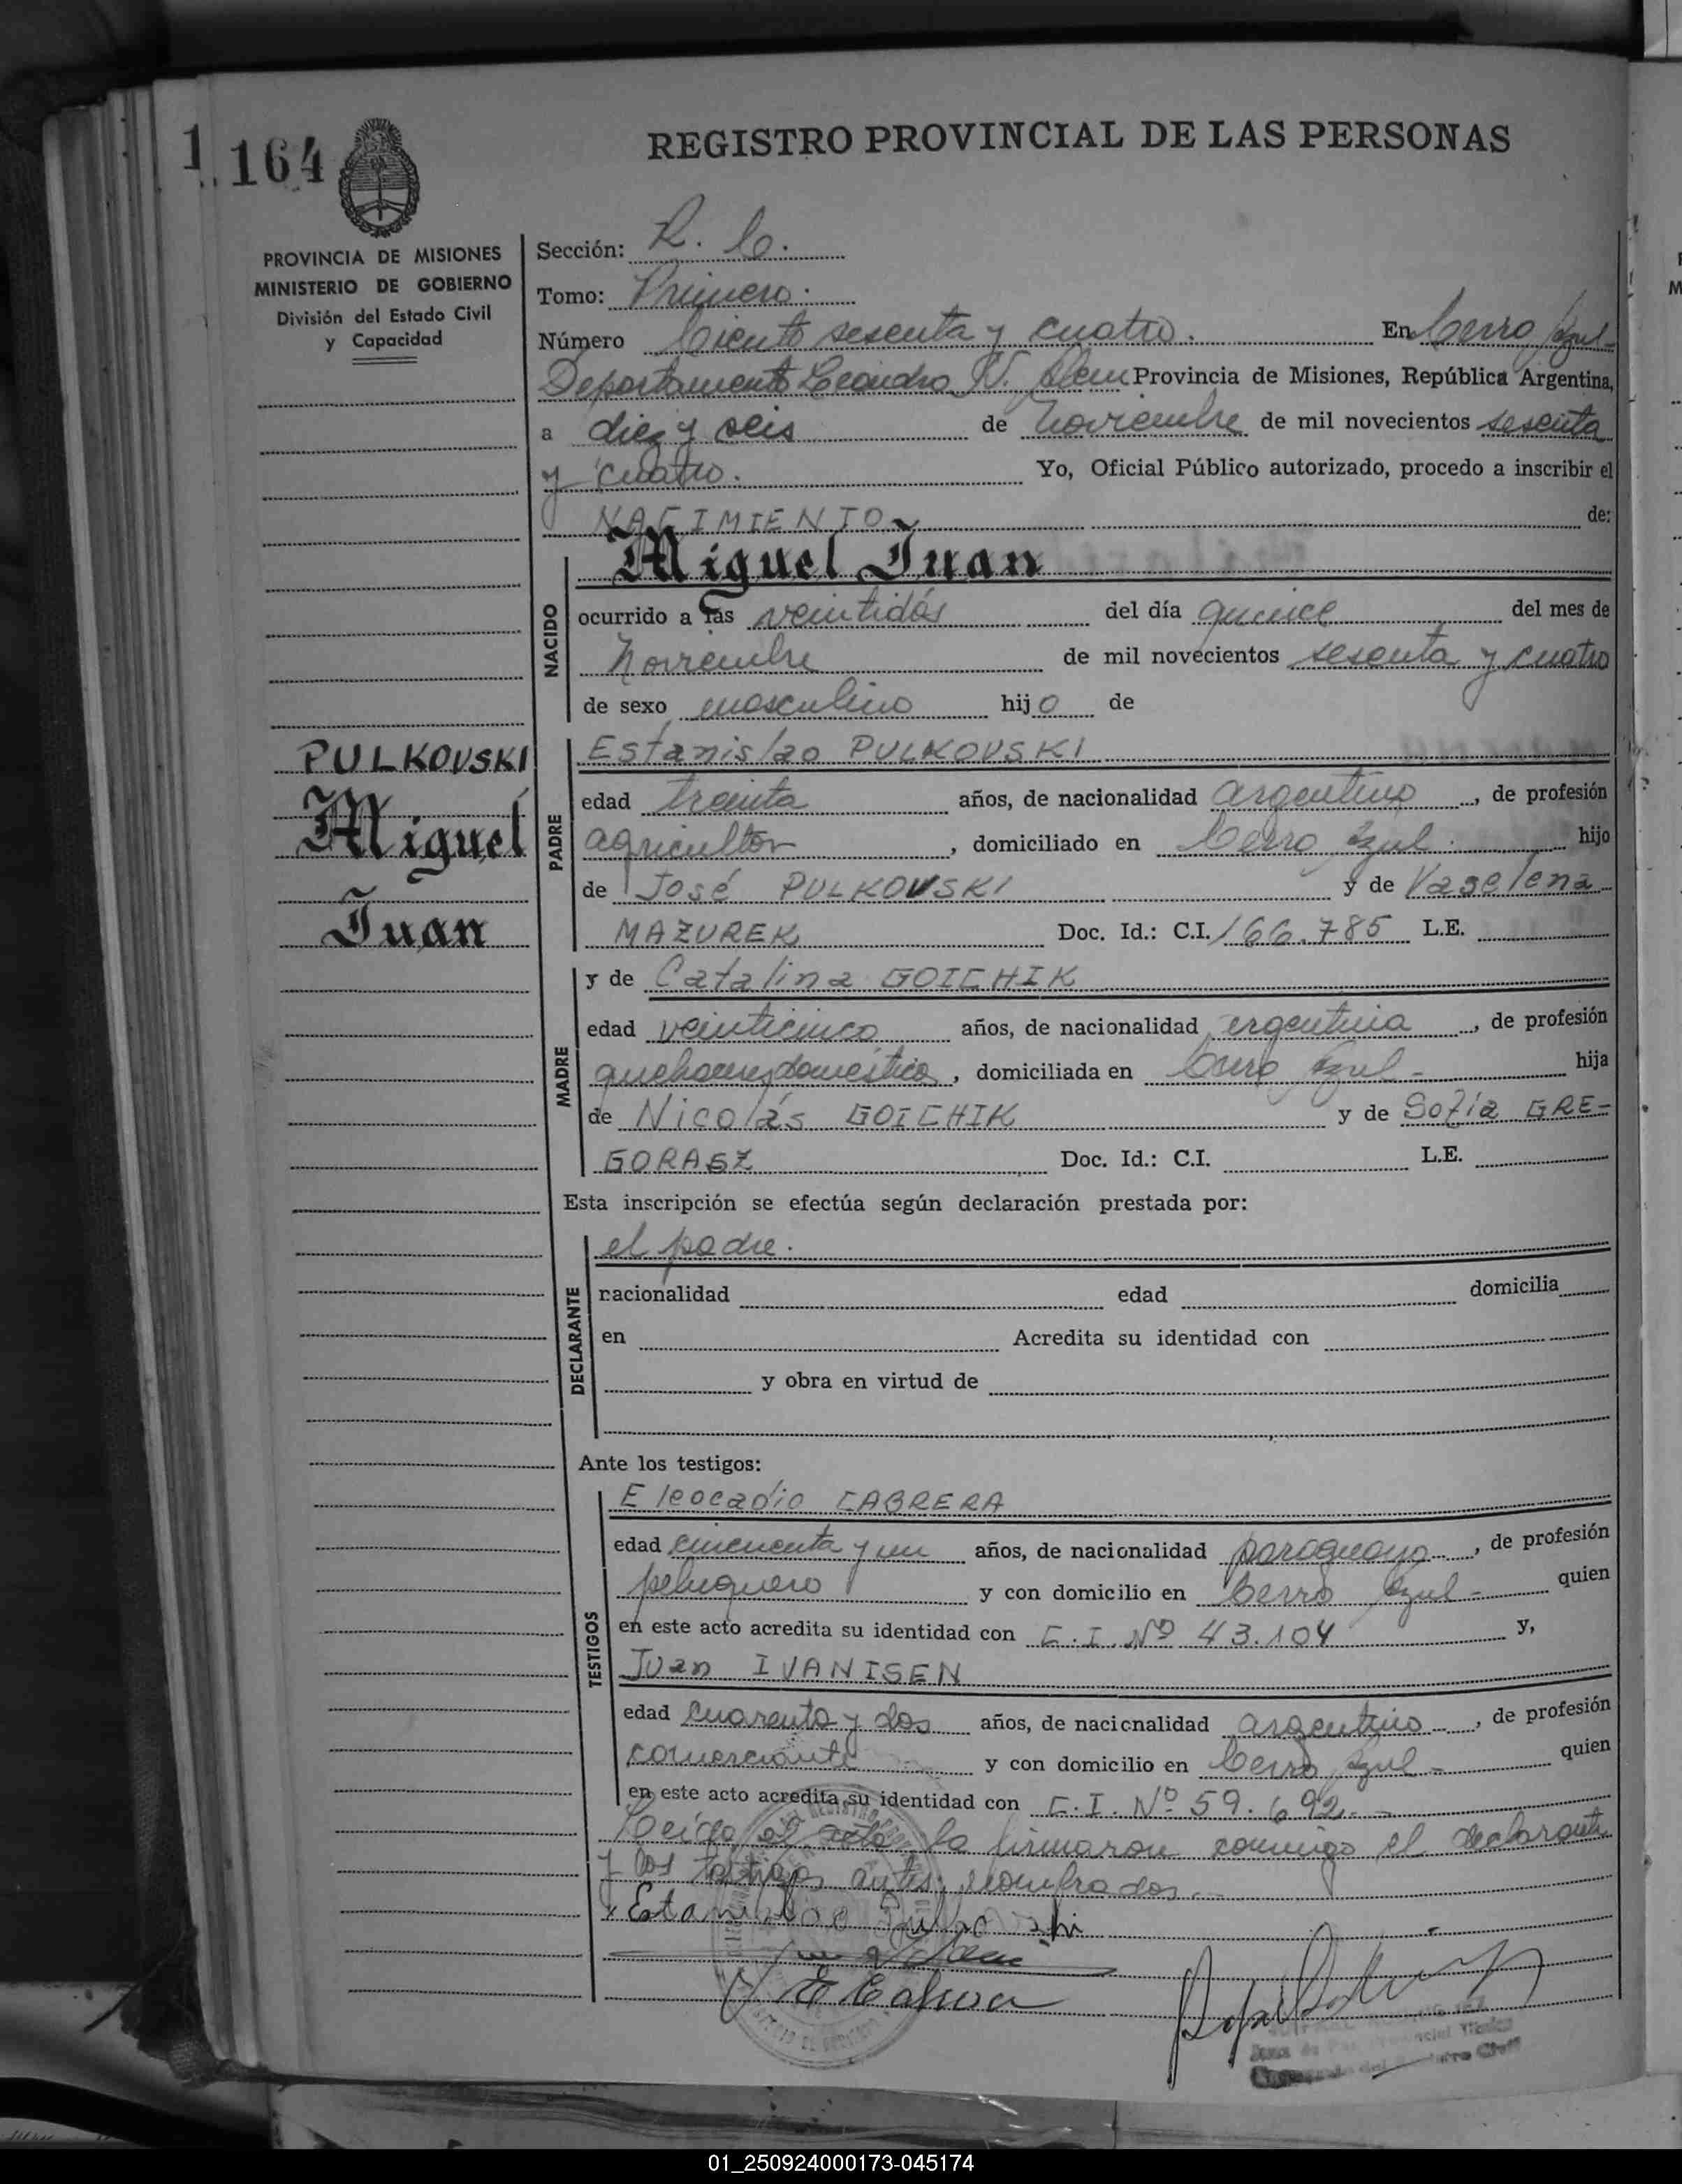 1 164
REGISTRO PROVINCIAL DE LAS PERSONAS
PROVINCIA DE MISIONES
MINISTERIO DE GOBIERNO
División del Estado Civil
y Capacidad
Sección: R. C.
Tomo: Primero.
Número Ciento sesenta y cuatro. En Cerro Azul-
Departamento Leandro N. Alem Provincia de Misiones, República Argentina,
a diez y seis de noviembre de mil novecientos sesenta
y cuatro. Yo, Oficial Público autorizado, procedo a inscribir el
NACIMIENTO de:
Miguel Juan
NACIDO
ocurrido a las veintidós del día quince del mes de
Noviembre de mil novecientos sesenta y cuatro
de sexo masculino hijo de
PULKOVSKI
Miguel
Juan
PADRE
Estanislao PULKOVSKI
edad treinta años, de nacionalidad argentino, de profesión
agricultor, domiciliado en Cerro Azul. hijo
de José PULKOVSKI y de Vaselena
MAZUREK Doc. Id.: C.I. 166.785 L.E.
MADRE
y de Catalina GOICHIK
edad veinticinco años, de nacionalidad argentina, de profesión
quehaceres domésticos, domiciliada en Cerro Azul- hija
de Nicolás GOICHIK y de Sofía GRE-
GORASZ Doc. Id.: C.I. L.E.
Esta inscripción se efectúa según declaración prestada por:
DECLARANTE
el padre.
nacionalidad edad domicilia
en Acredita su identidad con
y obra en virtud de
Ante los testigos:
TESTIGOS
Eleocadio CABRERA
edad cincuenta y un años, de nacionalidad paraguayo-, de profesión
peluquero y con domicilio en Cerro Azul- quien
en este acto acredita su identidad con C.I. Nº 43.104 y,
Juan IVANISEN
edad cuarenta y dos años, de nacionalidad argentino-, de profesión
comerciante y con domicilio en Cerro Azul- quien
en este acto acredita su identidad con C.I. Nº 59.692.-
Leída el acta, la firmaron conmigo el declarante
y los testigos antes nombrados.-
x Estanislao Pulkovski
01_250924000173-045174